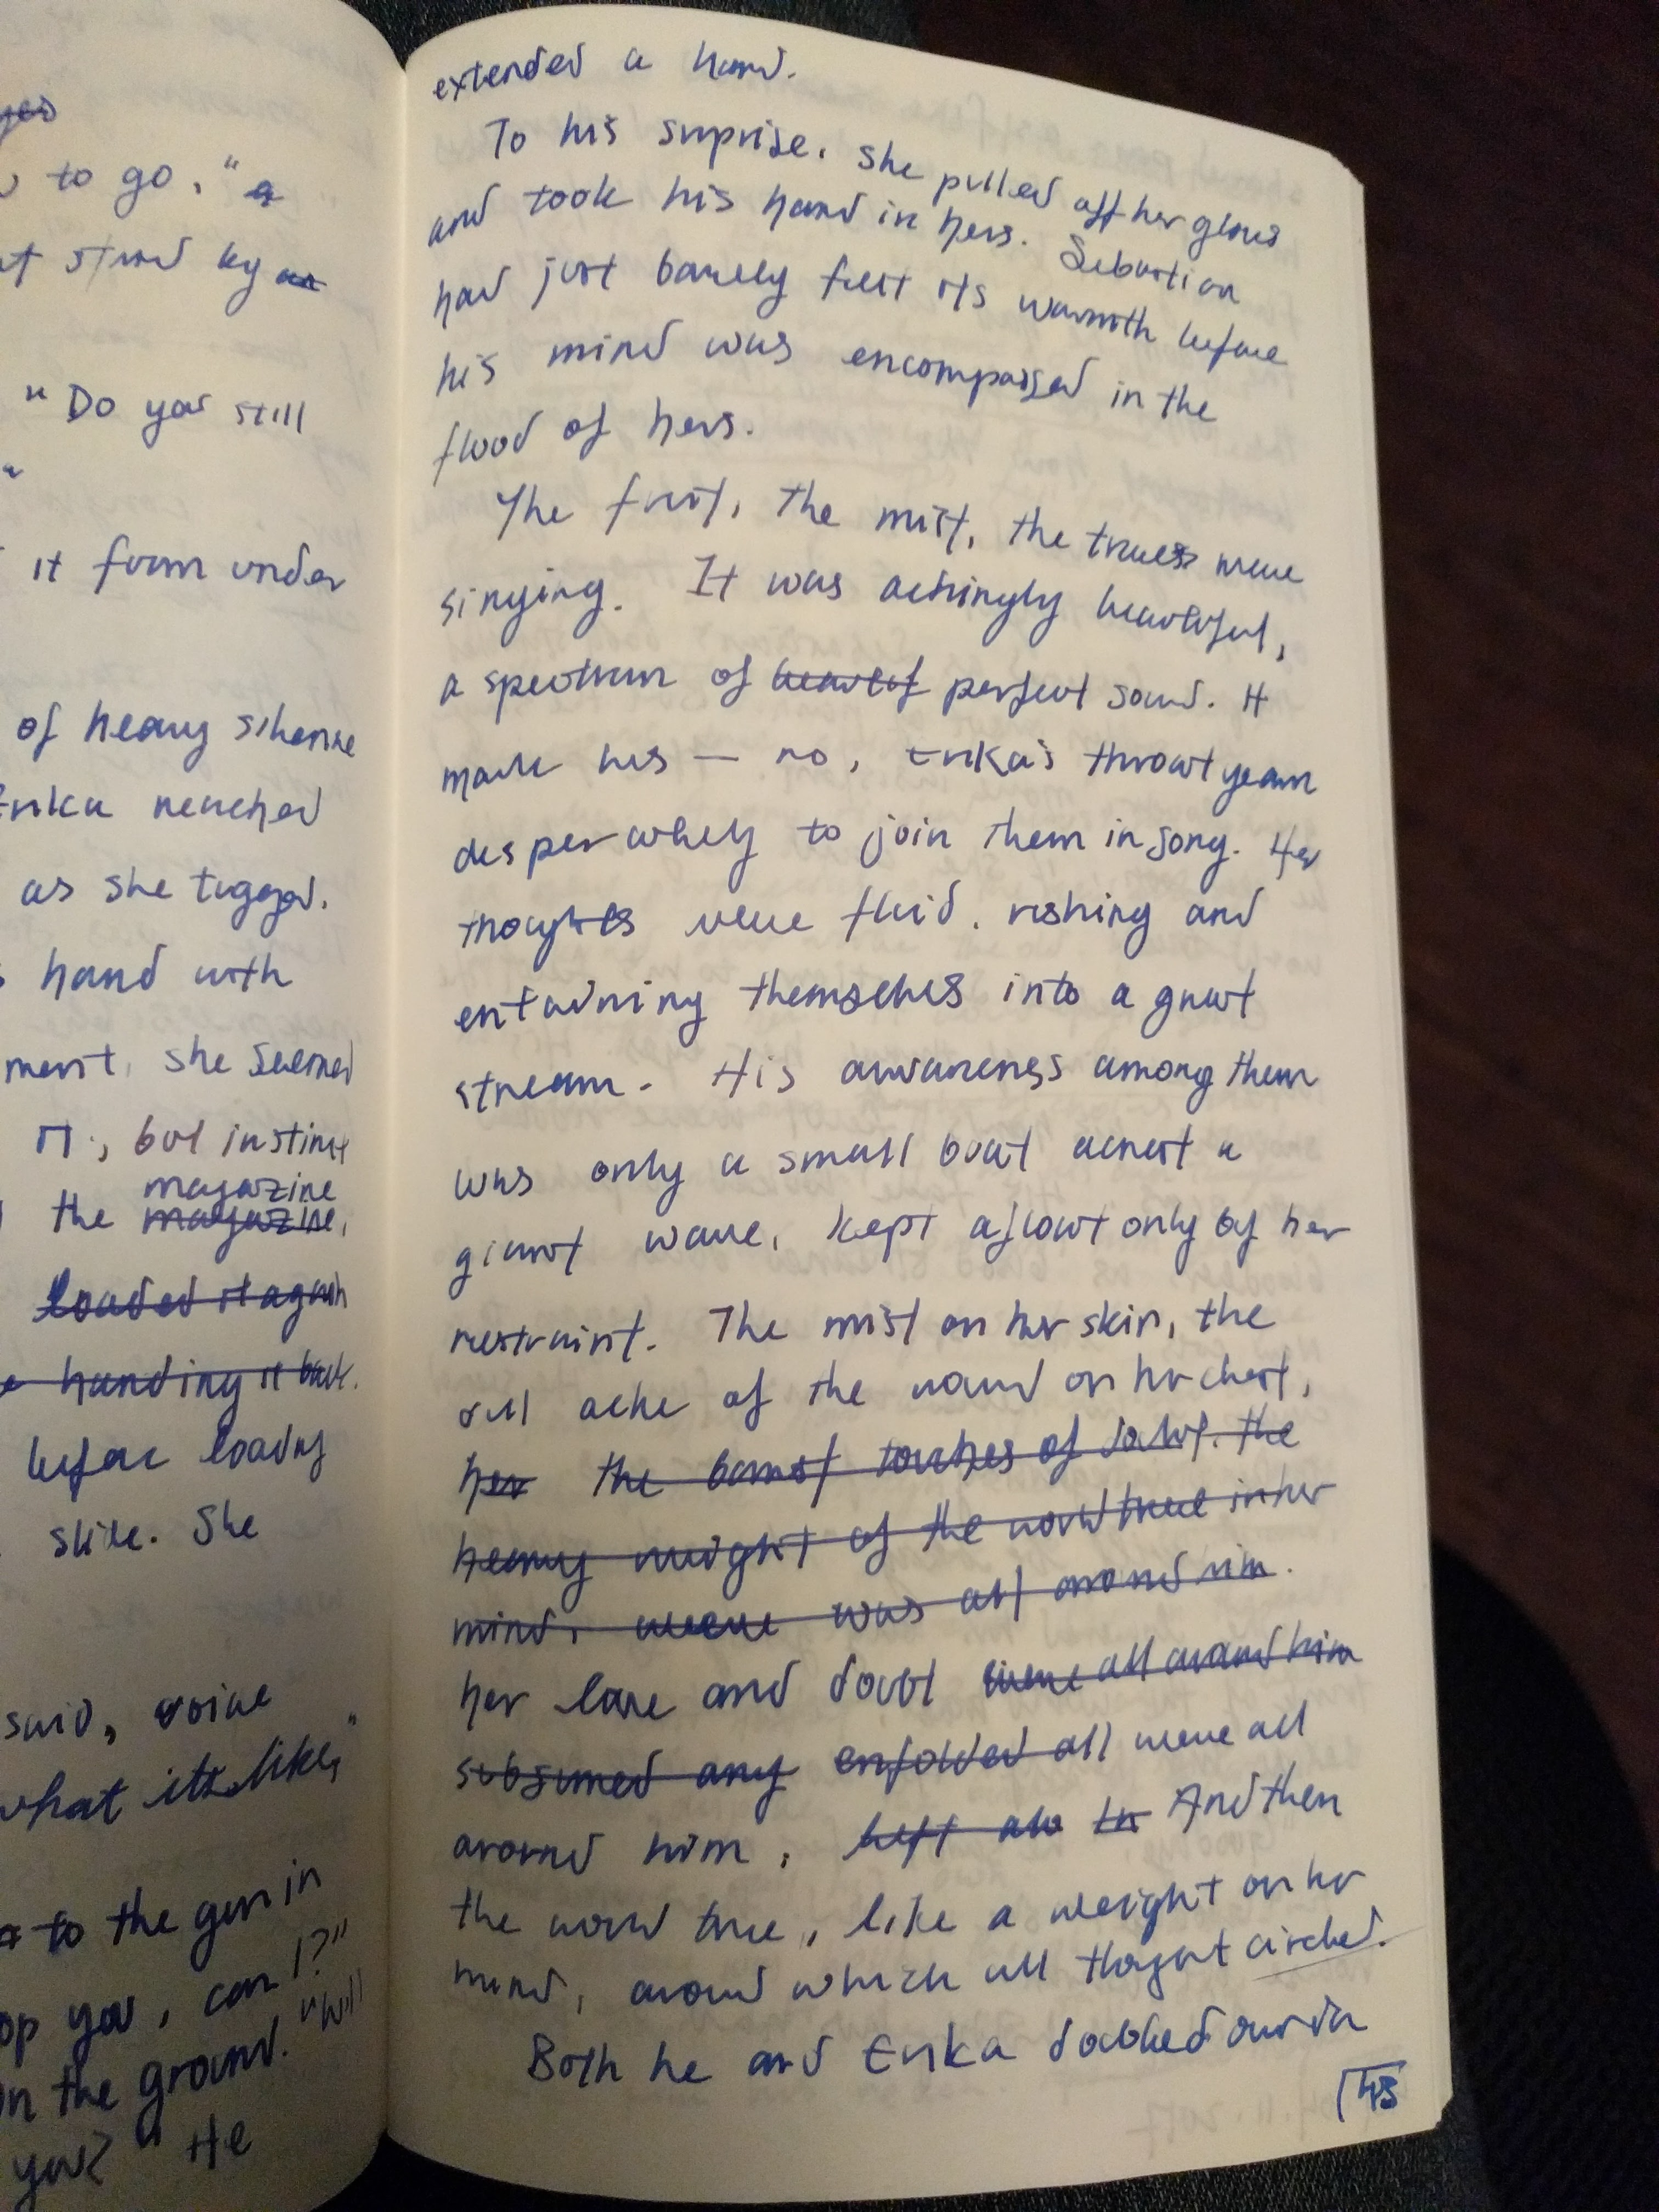 yes
to go."
stand by
"Do you still
it from under
of heavy silence
Erika reached
as she tugged.
hand with
ment, she seemed
it, but instinct
magazine
the magazine,
loaded it again
handing it back.
before loading
slide. She
said, voice
what it's like,"
to the gun in
op you, can I?"
on the ground. "Will
you?" He
extended a hand.
To his surprise, she pulled off her gloves
and took his hand in hers. Sebastian
had just barely felt its warmth before
his mind was encompassed in the
flood of hers.
The frost, the mist, the trees were
singing. It was achingly beautiful,
a spectrum of beautif perfect sound. It
made his — no, Erika's throat yearn
desperately to join them in song. Her
thoughts were fluid, rushing and
entwining themselves into a great
stream. His awareness among them
was only a small boat acrest a
giant wave, kept afloat only by her
restraint. The mist on her skin, the
dull ache of the wound on her chest,
her the touches of the
heavy weight of the world tree in her
mind, were was all around him.
her love and doubt were all around him
subsumed any enfolded all were all
around him, left And then
the world tree, like a weight on her
mind, around which all thought circled.
Both he and Erika doubled over in